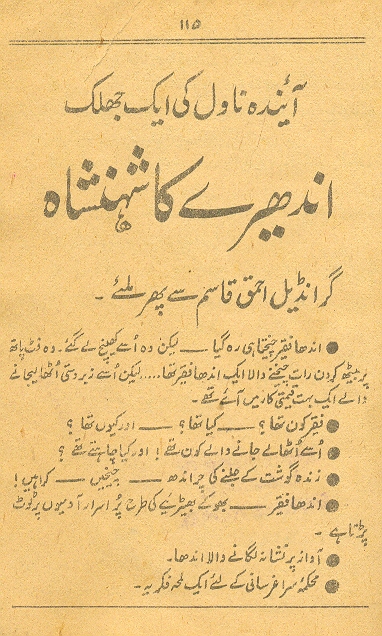 ۱۱۵
آئندہ ناول کی ایک جھلک
اندھیرے کا شہنشاہ
گرانڈیل احمق قاسم سے پھر ملئے ۔
● اندھا فقیر چیختا ہی رہ گیا ـــــ لیکن وہ اُسے کھینچ لے گئے ۔ وہ فٹ پاتھ
پر بیٹھ کر دن رات چیخنے والا ایک اندھا فقیر تھا..... لیکن اُسے زبردستی اُٹھا لیجانے
والے ایک بہت قیمتی کار میں آئے تھے ۔
● فقیر کون تھا ؟ ـــــ کیا تھا ؟ ـــــ اور کیوں تھا ؟
● اُسے اُٹھا لے جانے والے کون تھے ! اور کیا چاہتے تھے ؟
● زندہ گوشت کے جلنے کی چراندھ ـــــ چیخیں ـــــ کراہیں !
● اندھا فقیر ـــــ بھوکے بھیڑیے کی طرح پُر اسرار آدمیوں پر ٹوٹ
پڑتا ہے ۔
● آواز پر نشانہ لگانے والا اندھا ۔
● محکمۂ سراغرسانی کے لئے ایک لمحہ فکریہ ۔